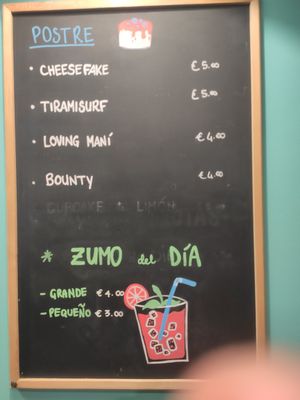 POSTRE
• CHEESEFAKE € 5.00
• TIRAMISURF € 5.00
• LOVING MANÍ € 4.00
• BOUNTY € 4.00
CUPCAKE LIMÓN
* ZUMO del DÍA
- GRANDE € 4.00
- PEQUEÑO € 3.00